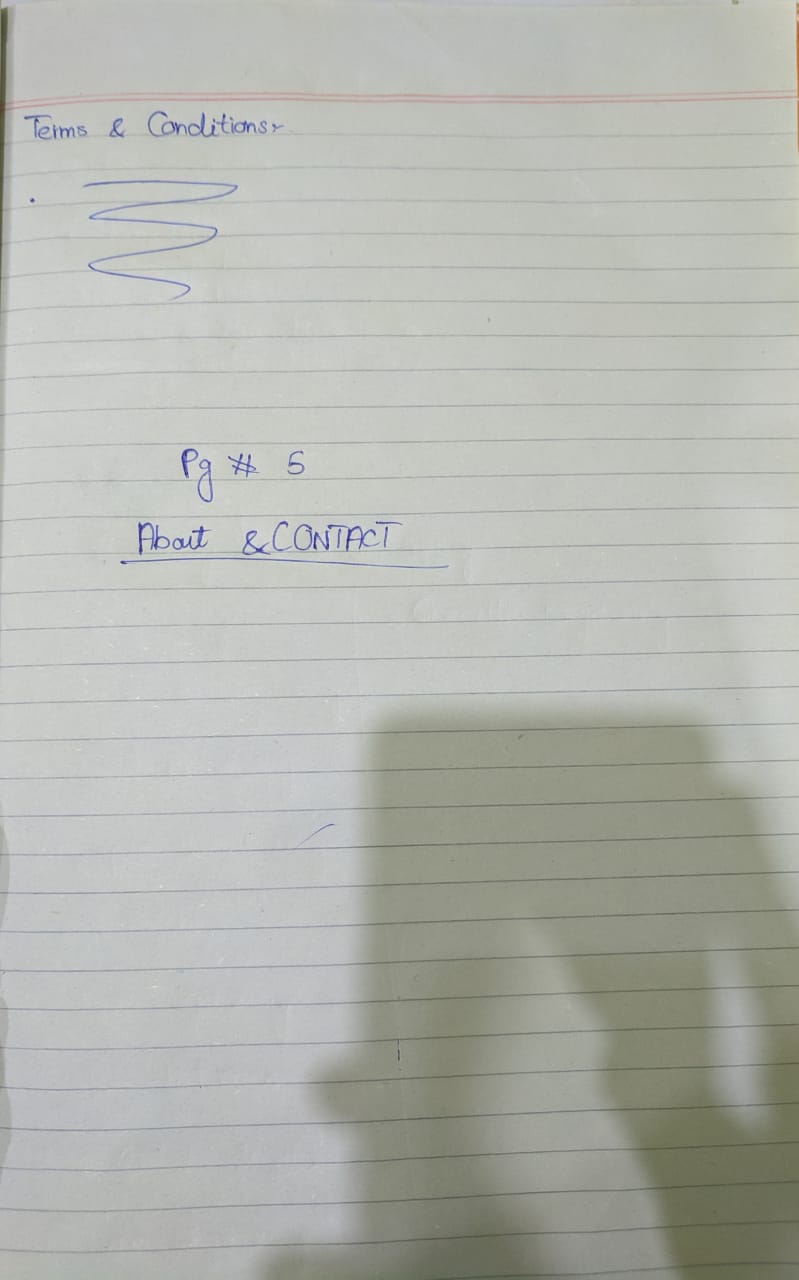 Terms & Conditions:-
Pg # 5
About & CONTACT